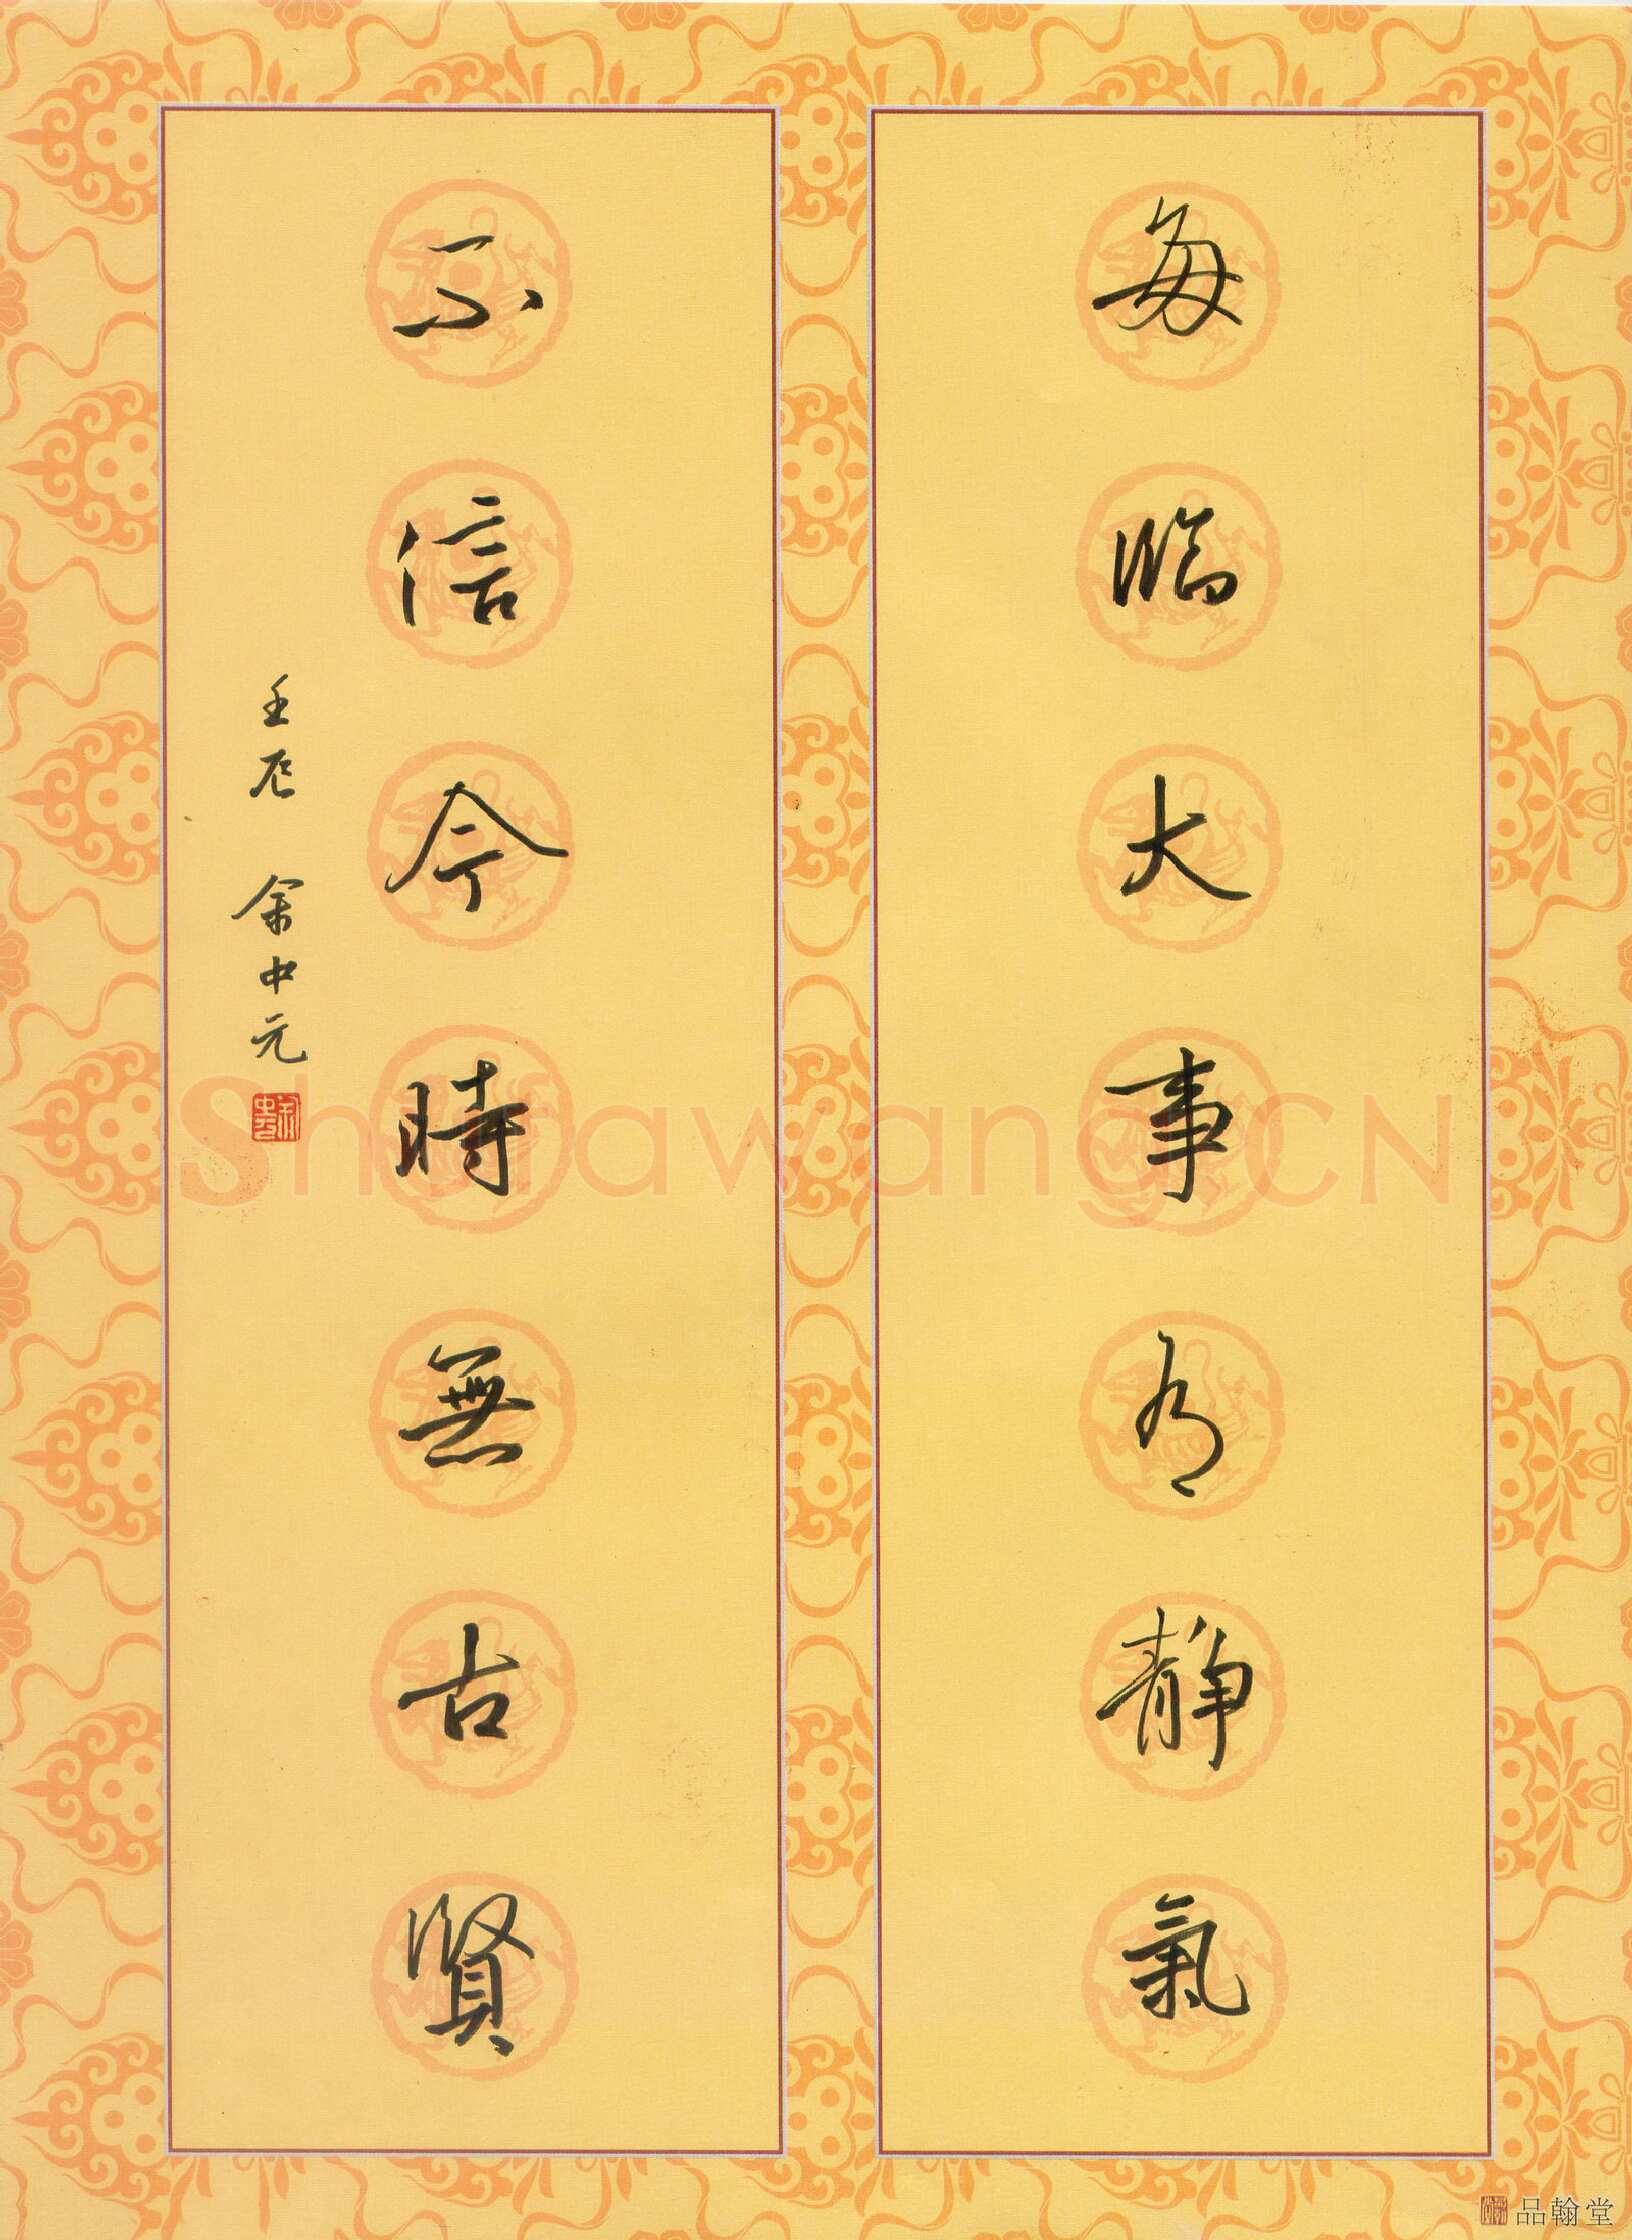 每臨大事有静氣
不信今時無古賢
壬辰 余中元
ShufawangCN
品翰堂